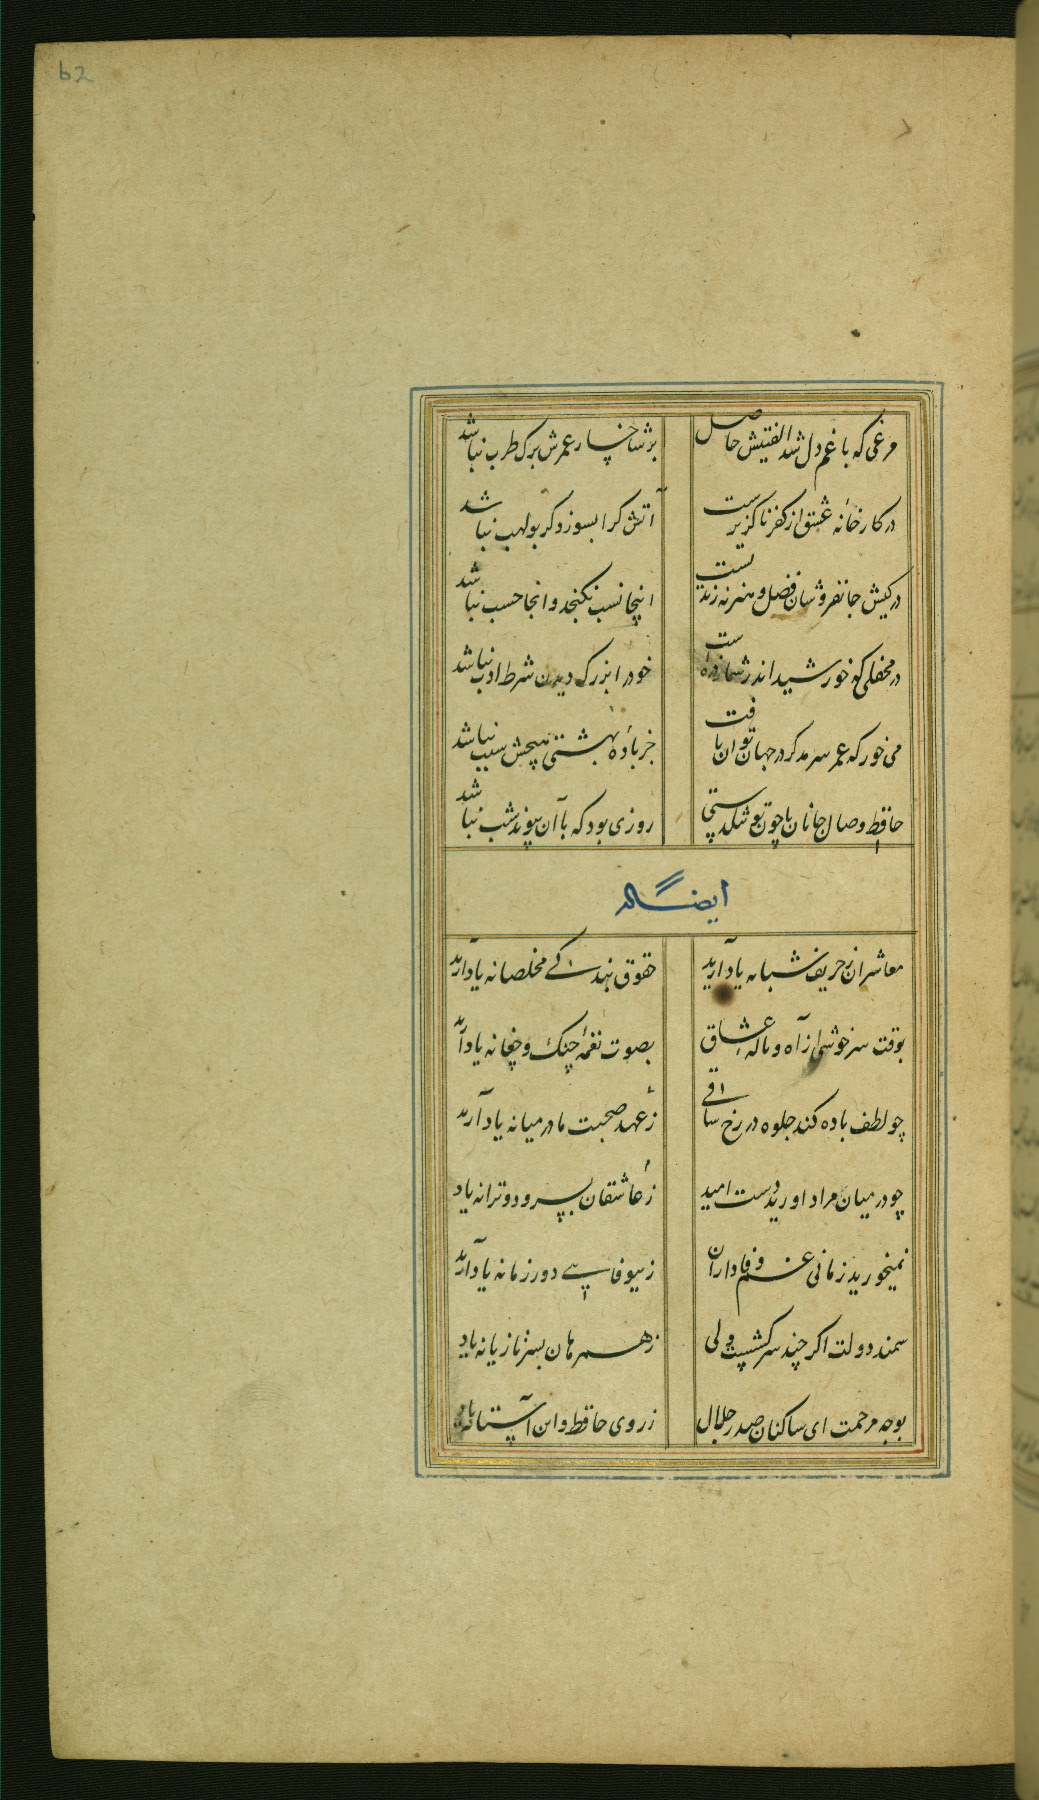 62
مرغی که با غم دل شد الفتیش حاصل
بر شاخسار عمرش برک طرب نباشد
در کارخانه عشق از کفر ناکزیرست
آتش کرا بسوزد کر بولهب نباشد
در کیش جانفروشان فضل و هنر نه زیبدست
اینجا نسب نکنجد وانجا حسب نباشد
در محفلی که خورشید اندر شمار ذره است
خود را بزرک دیدن شرط ادب نباشد
می خور که عمر سرمد کر در جهان توان یافت
جز باده بهشتی هیچش سبب نباشد
حافظ وصال جانان با چون تو تنکدستی
روزی بود که با آن پیوند شب نباشد
ایضاله
معاشران ز حریف شبانه یاد آرید
حقوق بندکی مخلصانه یاد آرید
بوقت سرخوشی از آه و ناله عشاق
بصوت نغمه چنک و چغانه یاد آرید
چو لطف باده کند جلوه در رخ ساقی
ز عهد صحبت ما در میانه یاد آرید
چو در میان مراد اورید دست امید
ز عاشقان بسرود و ترانه یاد
نمیخورید زمانی غم وفاداران
ز بیوفایی دور زمانه یاد آرید
سمند دولت اکر چند سرکشست ولی
ز همرهان بسر تازیانه یاد
بوجه مرحمت ای ساکنان صدر جلال
ز روی حافظ و این آستانه یاد